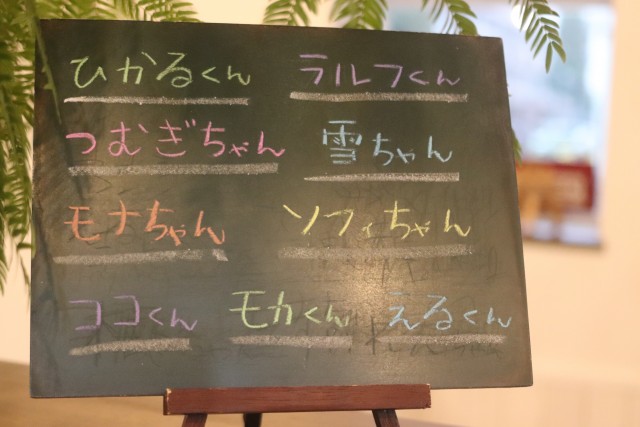 ひかるくん ラルフくん
つむぎちゃん 雪ちゃん
モナちゃん ソフィちゃん
ココくん モカくん えるくん